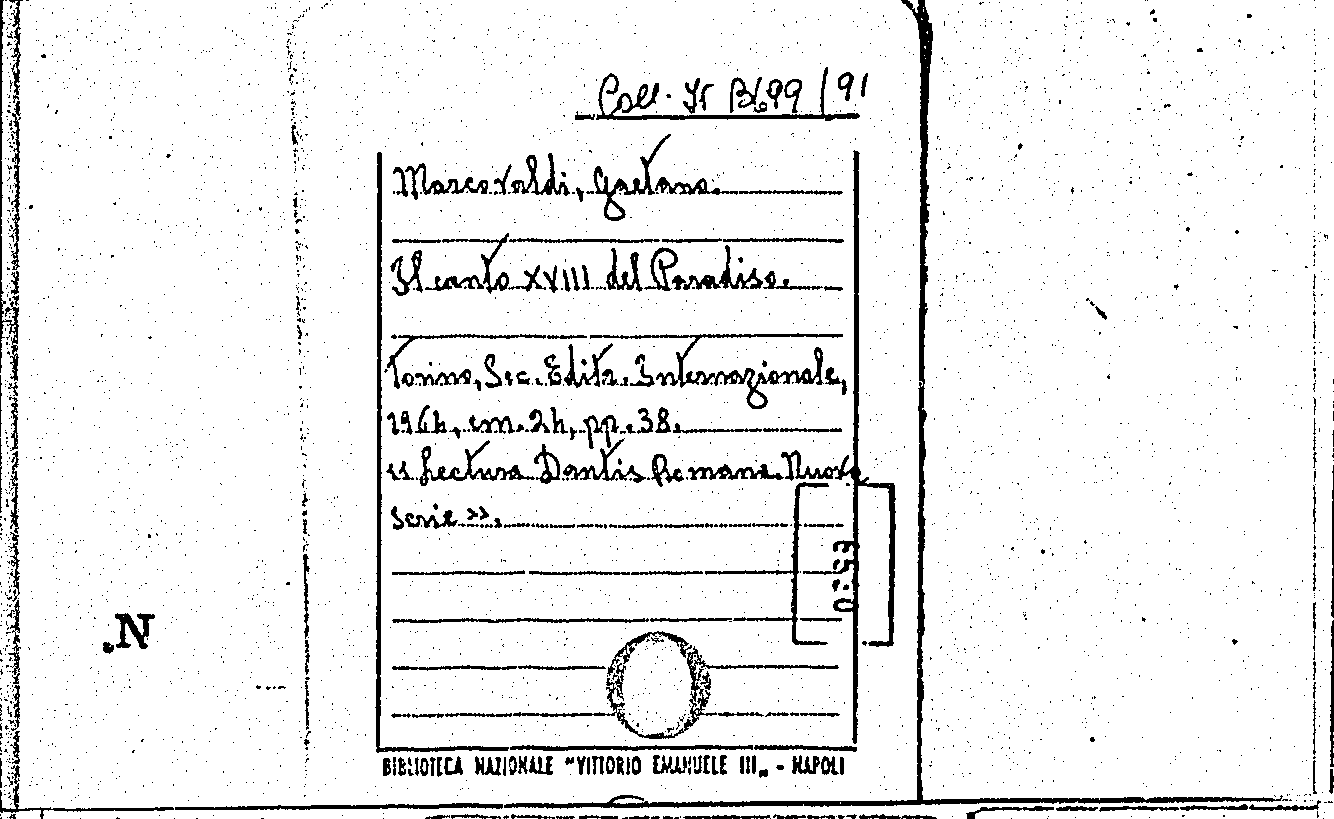 Coll. It B 699 / 91
Marcovaldi, Gaetano.
Il canto XVIII del Paradiso.
Torino, Soc. Editr. Internazionale,
1964, cm. 24, pp. 38.
<< Lectura Dantis Romana. Nuova
serie >>.
N.
BIBLIOTECA NAZIONALE "VITTORIO EMANUELE III„ - NAPOLI